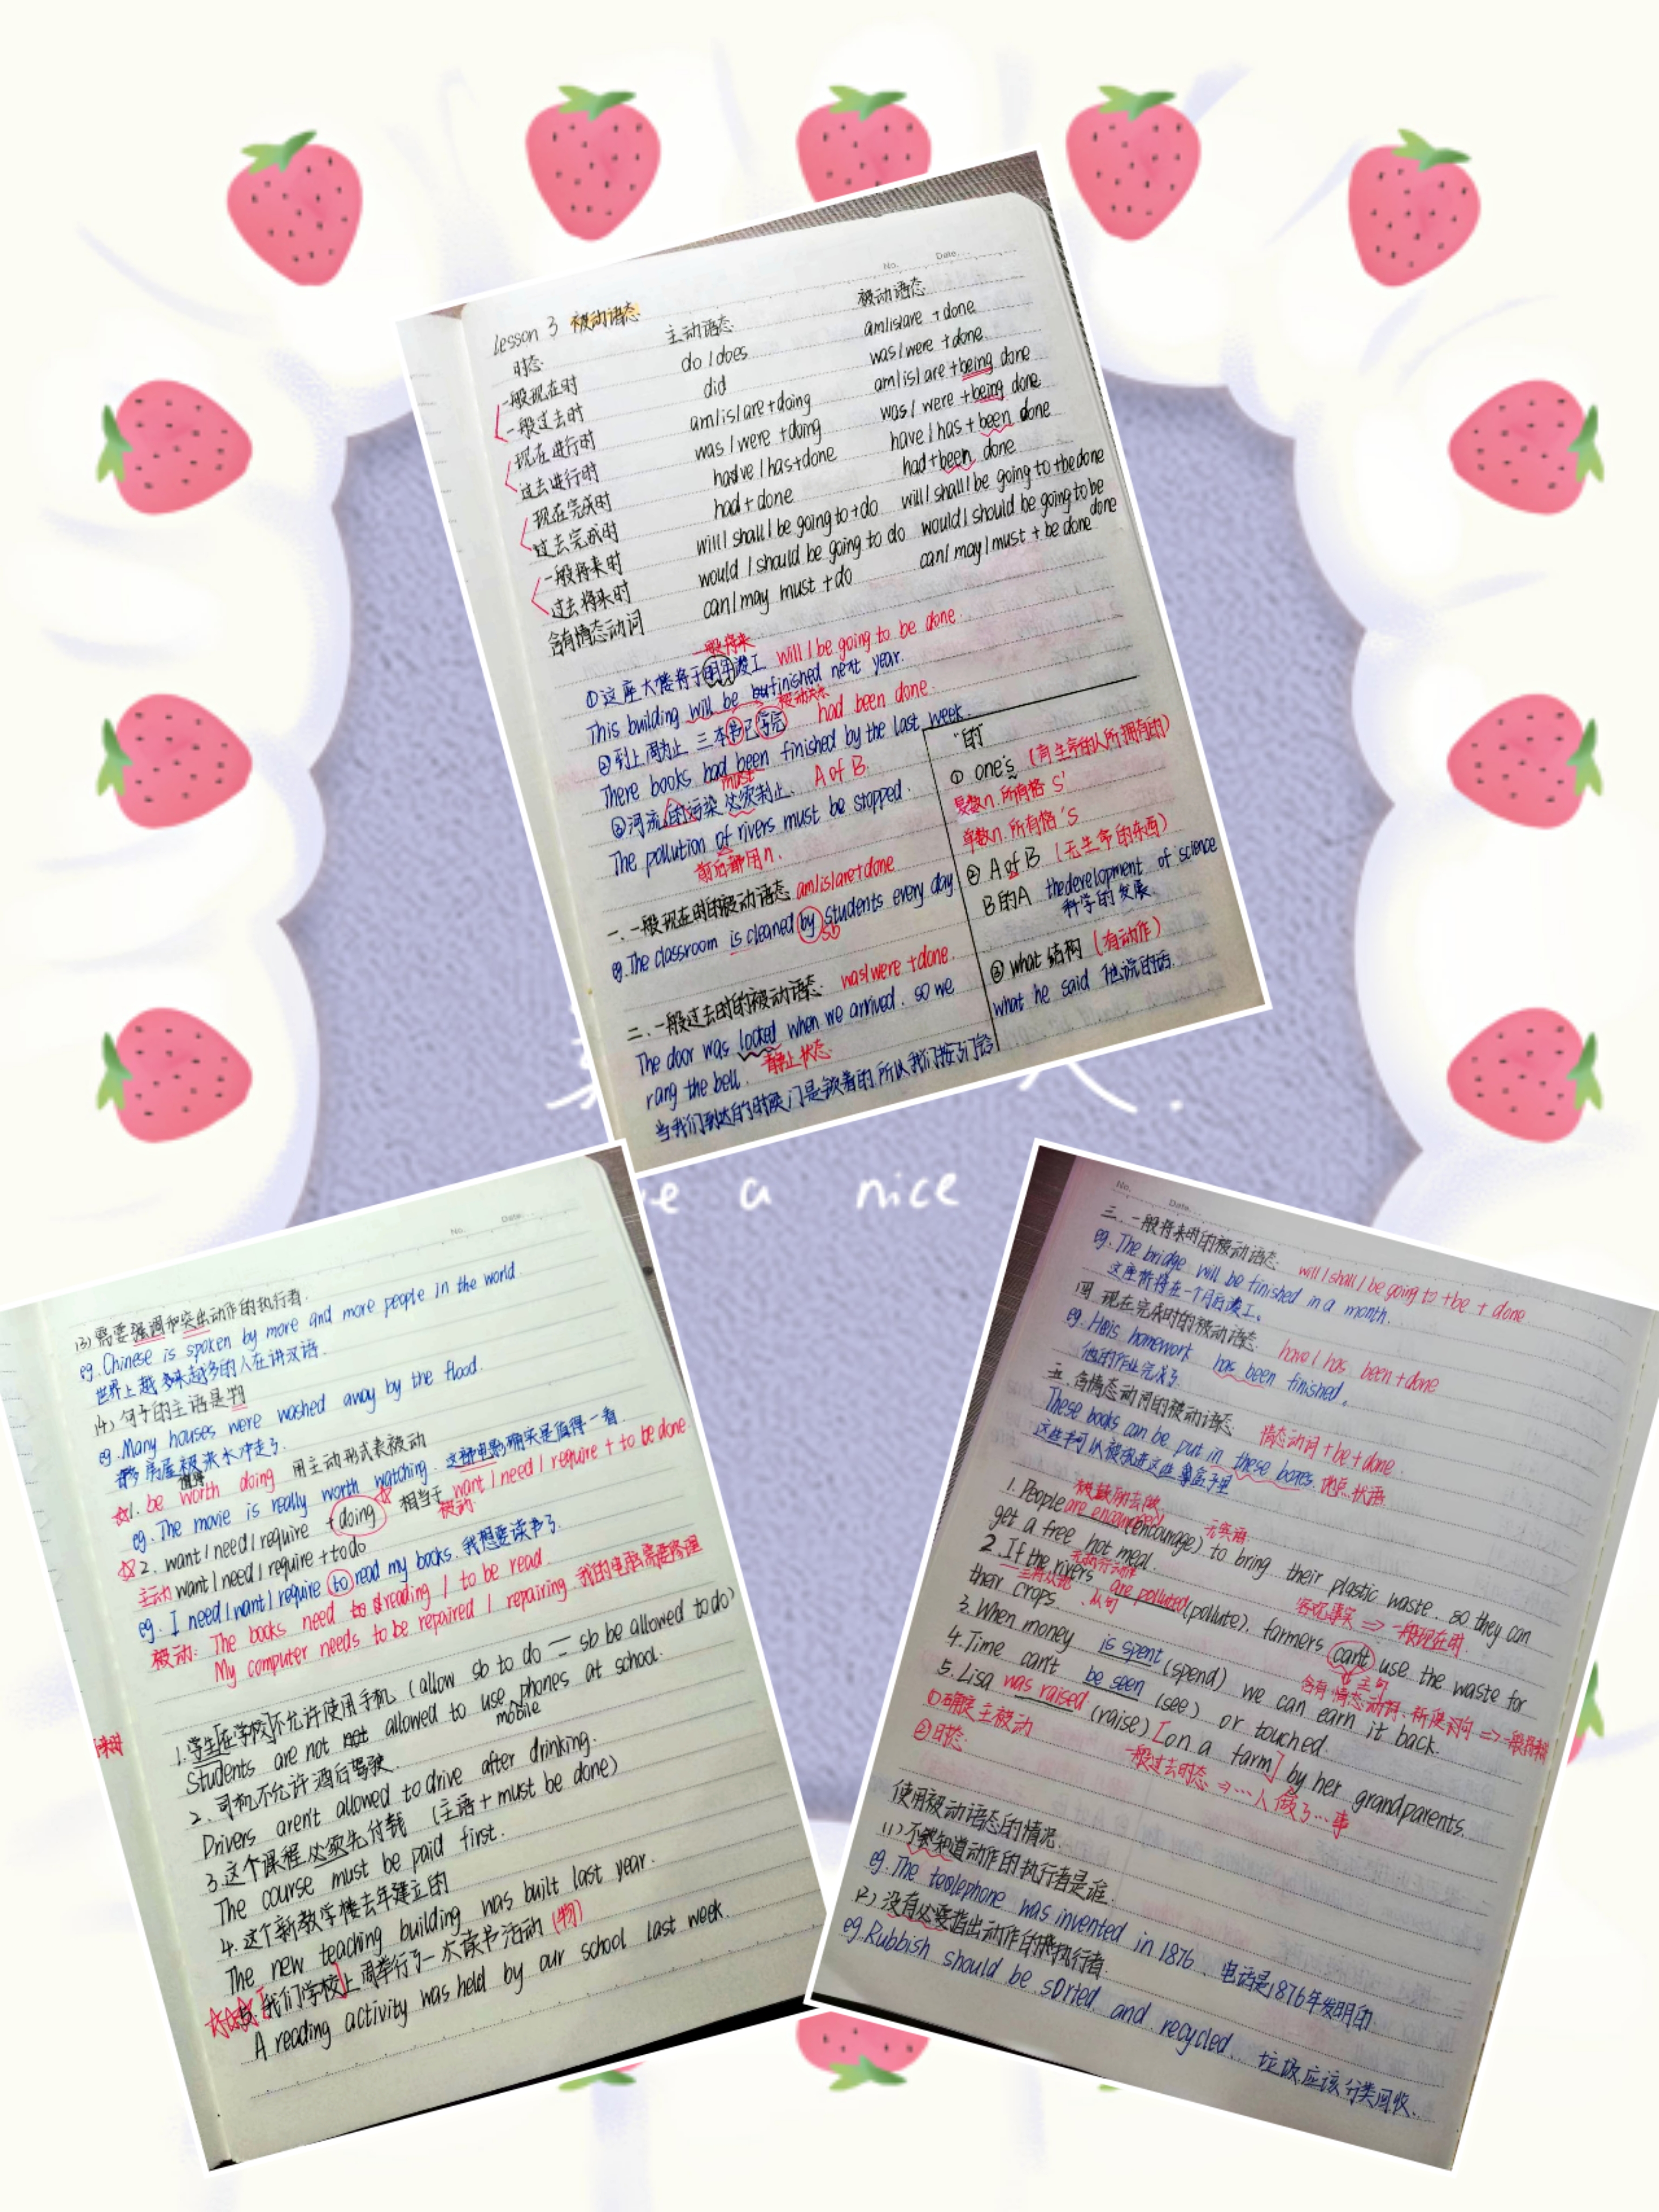 No. Date.
Lesson 3 被动语态
时态 主动语态 被动语态
一般现在时 do / does am/is/are + done
一般过去时 did was/were + done
现在进行时 am/is/are+doing am/is/are+being done
过去进行时 was/were +doing was/were +being done
现在完成时 have/has+done have/has+been done
过去完成时 had+done had+been done
一般将来时 will/shall/be going to+do will/shall/be going to +be done
过去将来时 would/should be going to do would/should be going to be done
含有情态动词 can/may must +do can/may/must + be done
一般将来
①这座大楼将于明年竣工 will/be going to be done.
This building will be finished next year.
被动关系
②到上周为止 三本书已写完 had been done.
There books had been finished by the last week.
must
③河流的污染必须制止. A of B.
The pollution of rivers must be stopped.
前后都用n.
一.一般现在时的被动语态 am/is/are+done
eg.The classroom is cleaned by students every day.
sb
二.一般过去时的被动语态. was/were +done.
The door was locked when we arrived. so we
rang the bell. 静止状态.
当我们到达的时候门是锁着的.所以我们按了门铃
"的"
① one's (有生命的人所拥有的)
复数n.所有格 s'
单数n.所有格 's
② A of B (无生命的东西)
B的A the development of science
科学的发展.
③ what 结构 (有动作)
what he said 他说的话.
e a nice
No. Date.
(3)需要强调和突出动作的执行者.
eg.Chinese is spoken by more and more people in the world.
世界上越来越多的人在讲汉语.
(4)句子的主语是物
eg.Many houses were washed away by the flood.
房屋被洪水冲走了.
☆1. be worth doing 用主动形式表被动
eg.The movie is really worth watching. 这部电影确实是值得一看.
☆2. want/need/require +doing 相当于 want/need/require + to be done.
被动.
主动 want/need/require +to do
eg. I need/want/require to read my books. 我想要读书了.
被动: The books need reading / to be read.
My computer needs to be repaired / repairing. 我的电脑需要修理
1.学生[在学校]不允许使用手机 (allow sb to do = sb be allowed to do)
Students are not allowed to use phones at school.
mobile
2.司机不允许酒后驾驶.
Drivers aren't allowed to drive after drinking.
3.这个课程必须先付钱 (主语+must be done)
The course must be paid first.
4.这个新教学楼去年建立的
The new teaching building was built last year.
5.我们学校上周举行了一次读书活动 (物)
A reading activity was held by our school last week.
No. Date.
三.一般将来时的被动语态. will/shall/be going to +be + done
eg.The bridge will be finished in a month.
这座桥将在一个月后竣工.
四.现在完成时的被动语态. have/has been+done
eg.His homework has been finished.
他的作业完成了.
五.含情态动词的被动语态. 情态动词+be+done.
These books can be put in these boxes. 地点状语
被鼓励去做
1.People are encouraged (encourage) to bring their plastic waste. so they can
get a free hot meal.
2.If the rivers are polluted (pollute), farmers can't use the waste for
their crops 从句 客观事实 ⇒ 一般现在时
主句
3.When money is spent (spend) we can earn it back.
4.Time can't be seen (see) or touched.
5.Lisa was raised (raise) [on a farm] by her grandparents.
①确定主被动
②时态. 一般过去时态 ⇒ …人做了…事
使用被动语态的情况.
(1)不知道动作的执行者是谁.
eg.The telephone was invented in 1876. 电话是1876年发明的
(2)没有必要指出动作的执行者.
eg.Rubbish should be sorted and recycled. 垃圾应该分类回收.